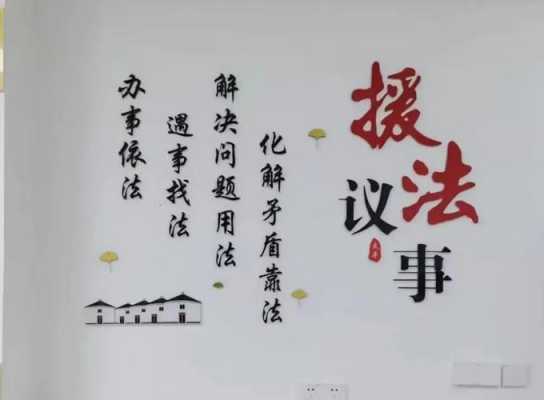 援法
议事
办事依法
遇事找法
解决问题用法
化解矛盾靠法